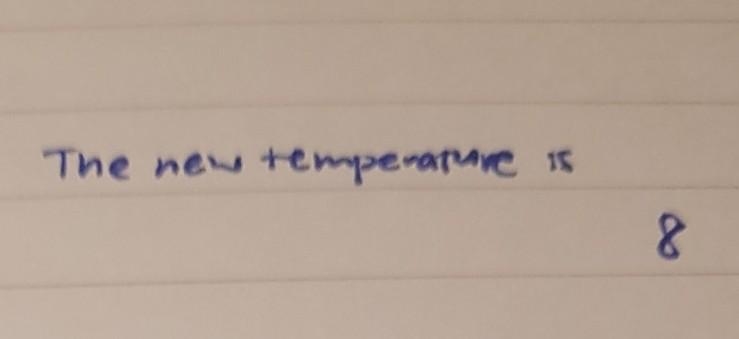 The new temperature is
8